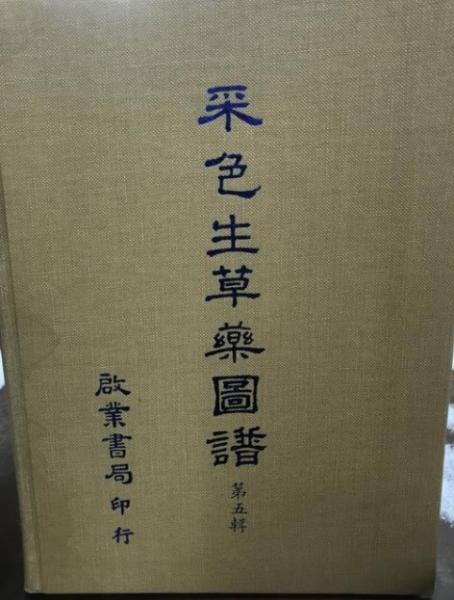 采色生草藥圖譜
第五輯
啟業書局印行